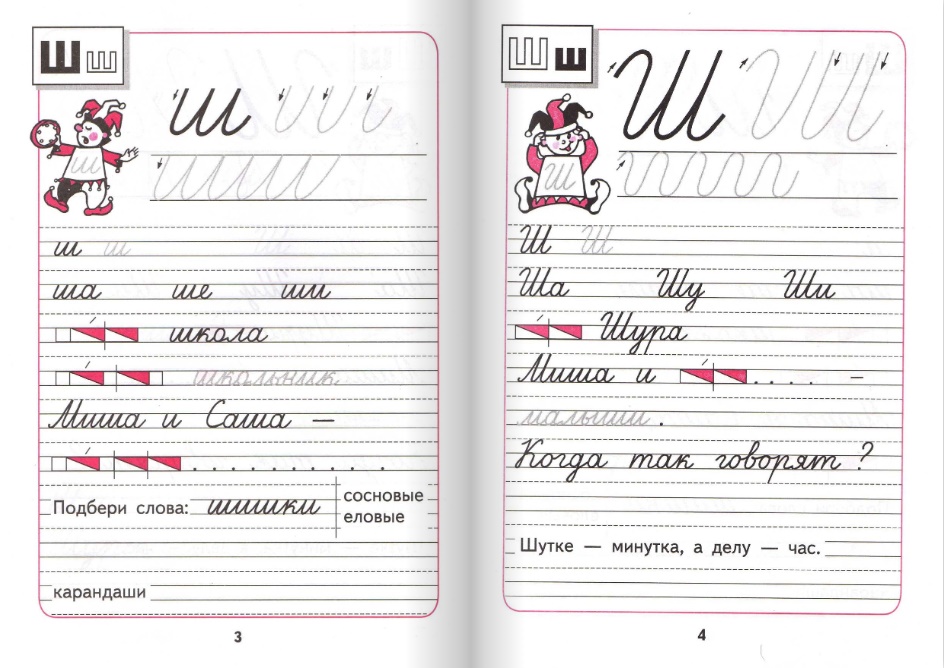 Ш ш
ш ш ш
ш ш ш ш
ш
ш ш
ша ше ши
школа
школьник
Миша и Саша —
. . . . . . . . . . .
Подбери слова: шишки
сосновые
еловые
карандаши
3
Ш ш
Ш Ш Ш
Ш
Ш Ш
Ша Шу Ши
Шура
Миша и . . . . —
малыши .
Когда так говорят ?
Шутке — минутка, а делу — час.
4